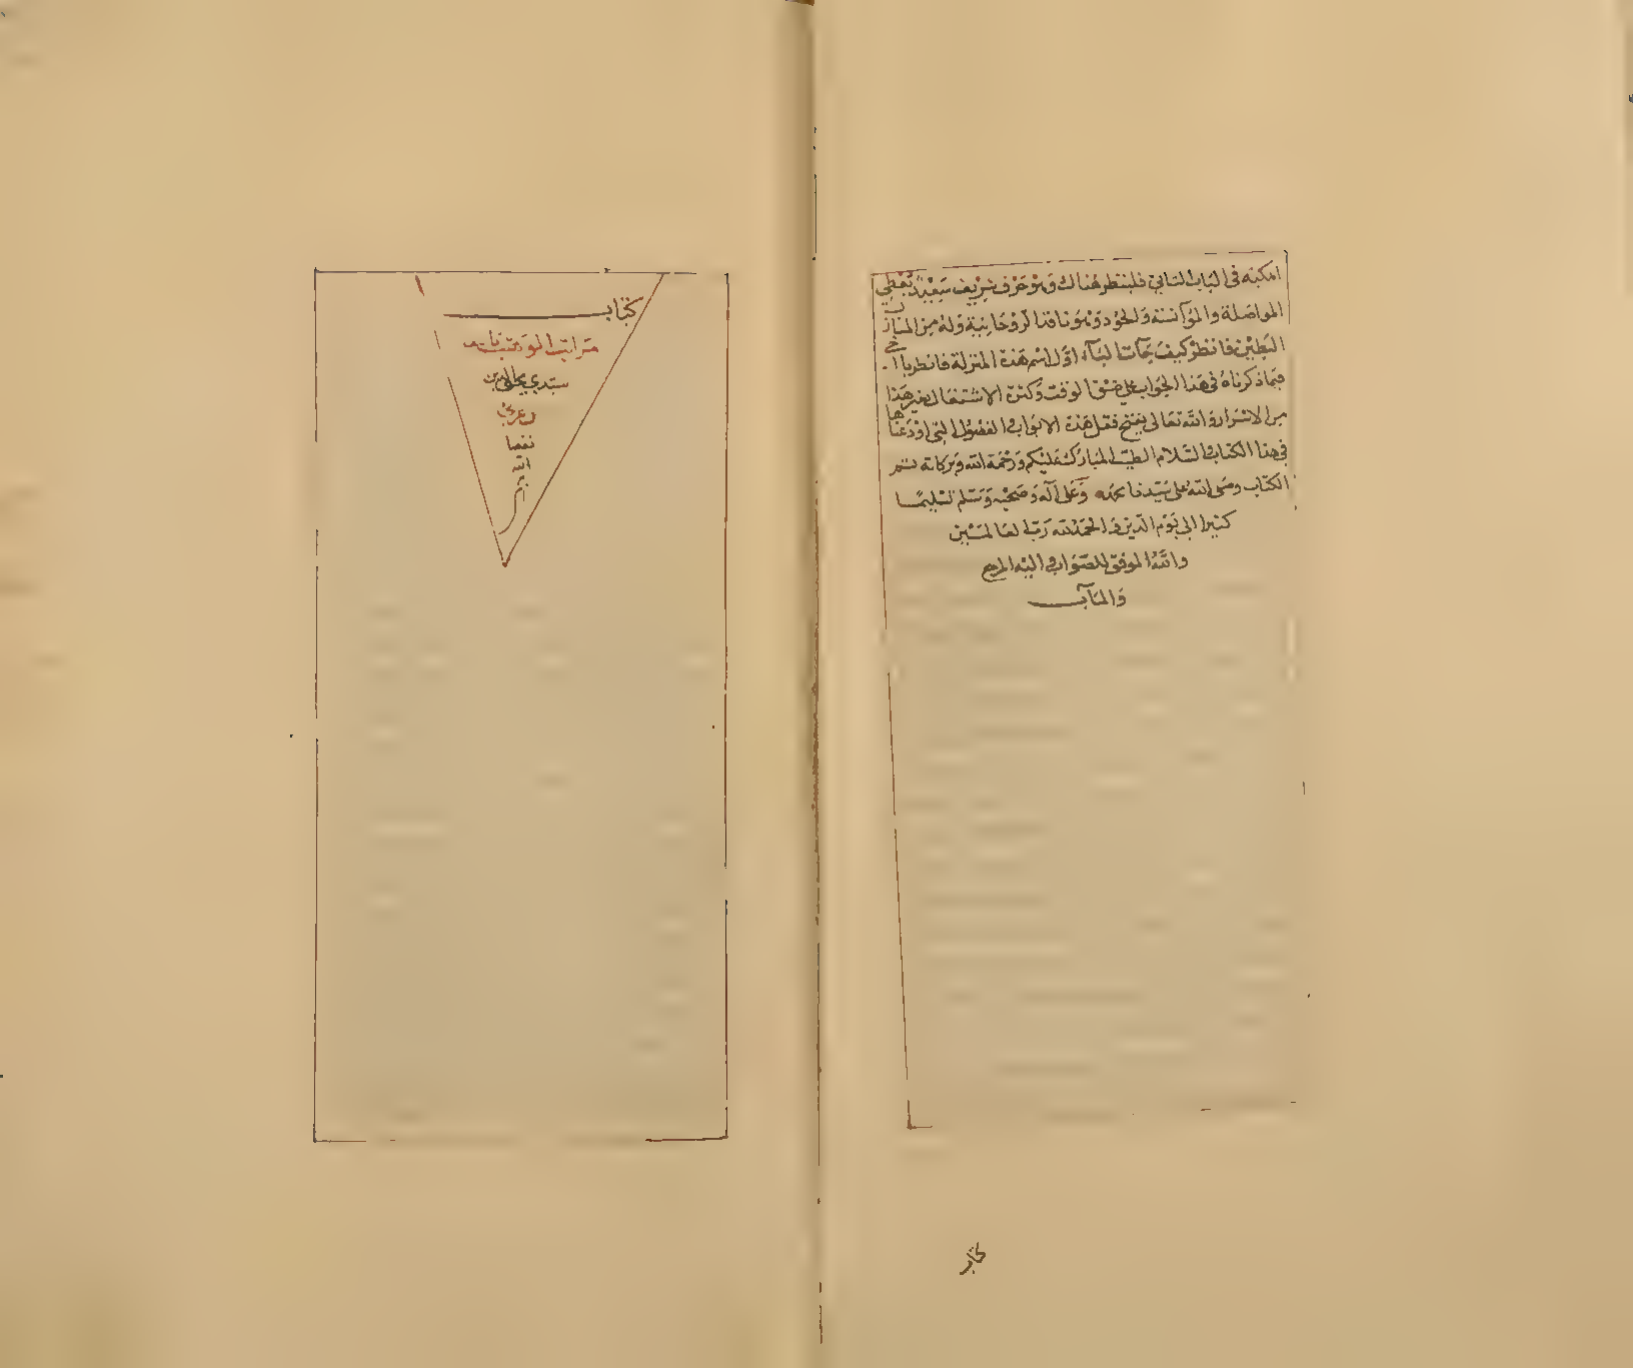 امكنه فى الباب الثانى فلينظر هناك وهو حرف شريف سعيد يعطي
المواصلة والمؤانسة والجود وهو نافذ الروحانية وله من المنازل
البطين فانظر كيف جآت البآء اول اسم هذه المنزلة فانظر يا اخي
فيما ذكرناه فى هذا الجواب على ضيق الوقت وكثرة الاشتغال بغير هذا
من الاسرار والله تعالى يفتح قفل هذه الابواب والفصول التى اودعناها
فى هذا الكتاب والسلام الطيب المبارك عليكم ورحمة الله وبركاته تم
الكتاب وصلى الله على سيدنا محمد وعلى آله وصحبه وسلم تسليمًا
كثيرا الى يوم الدين والحمد لله رب العالمين
والله الموفق للصواب واليه المرجع
والمآب
كتاب
كتاب
مراتب
سيدي محي الدين
بن عربي
نفعنا
الله
به